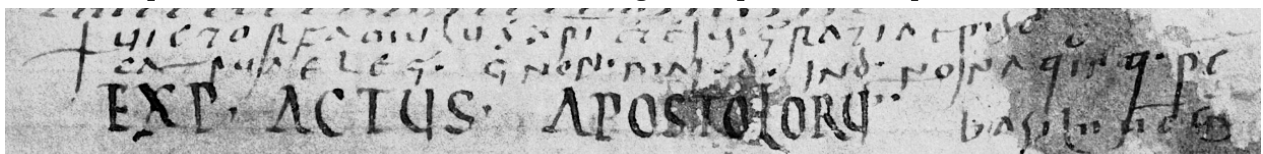 † uictor famulus xpi et eius gratia episc
capuae leg. ς non. mai. d. ind. nona quinq. pc
EXP· ACTUS· APOSTOLORU·· basilii